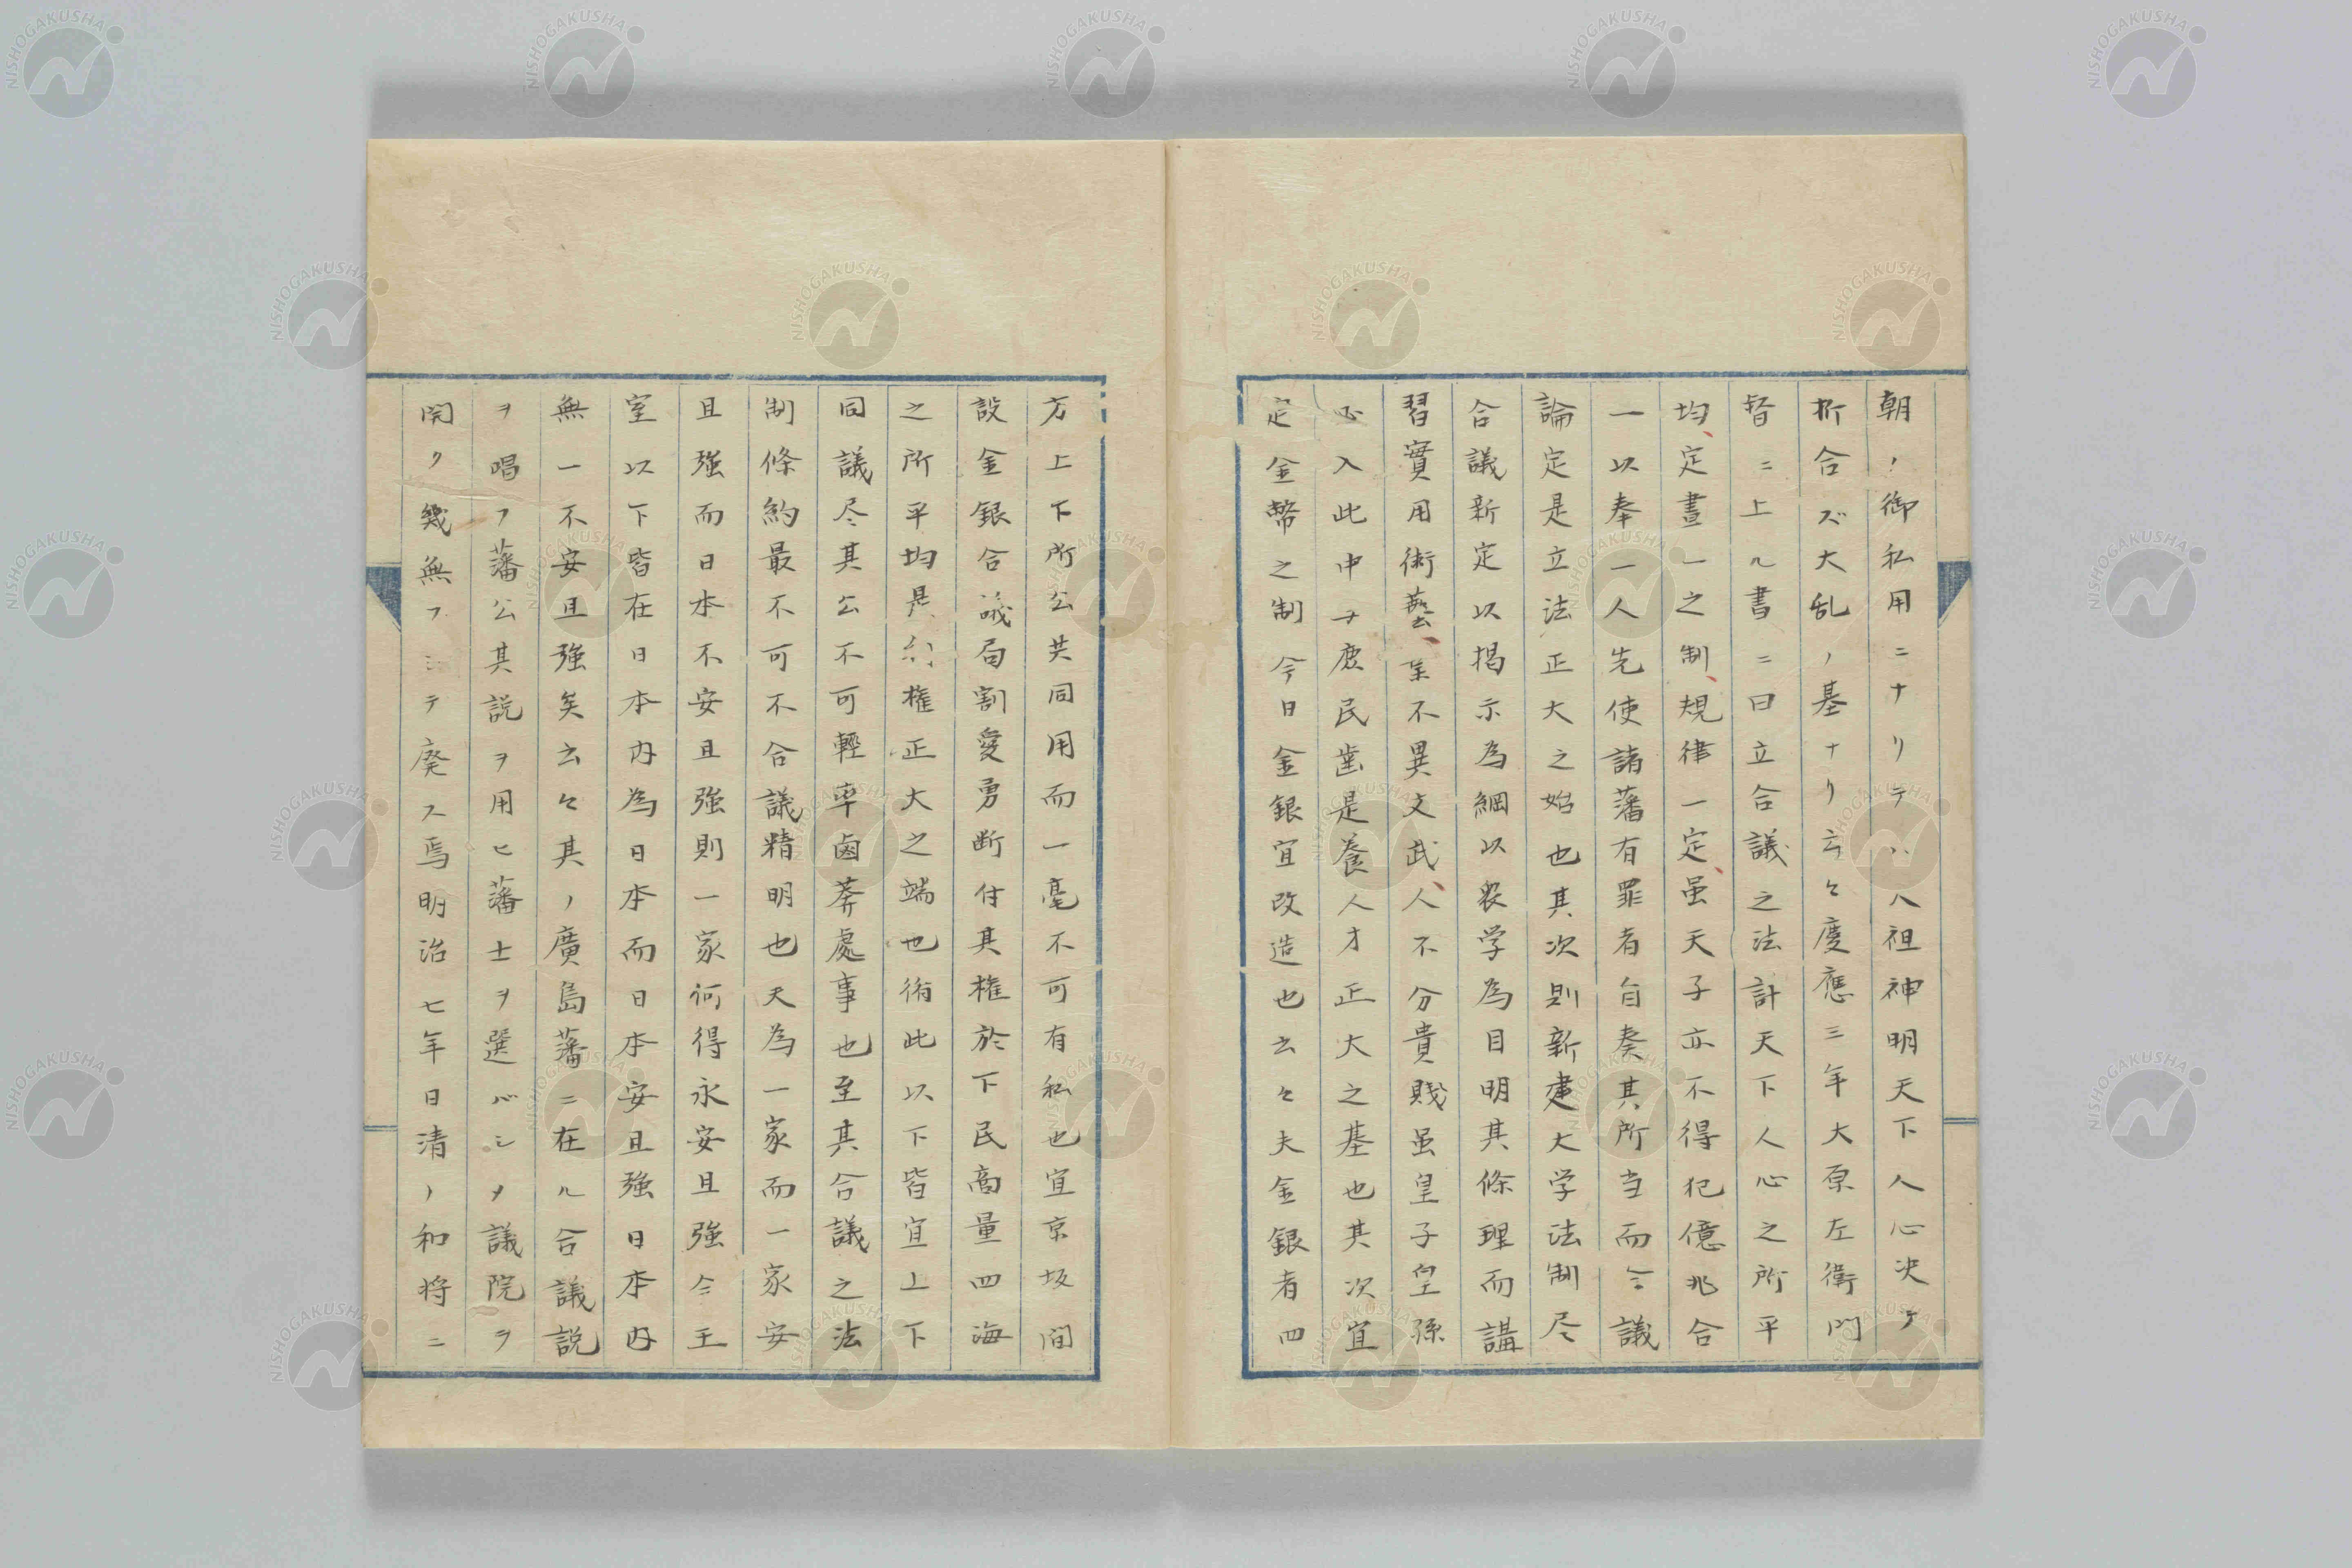 朝ノ御私用ニナリテハ八祖神明天下人心决テ
折合ズ大乱ノ基ナリ云々慶應三年大原左衛門
督ニ上ル書ニ曰立合議之法計天下人心之所平
均、定畫一之制、規律一定、虽天子亦不得犯億兆合
一以奉一人先使諸藩有罪者自奏其所当而合議
論定是立法正大之始也其次則新建大学法制尽
合議新定以揭示為綱以衆学為目明其條理而講
習實用術藝、業不異文武、人不分貴賎虽皇子皇孫
必入此中ヿ庶民齒是養人才正大之基也其次宜
定金幣之制今日金銀宜改造也云々夫金銀者四
方上下所公共同用而一毫不可有私也宜京坂間
設金銀合議局割愛勇断付其権於下民商量四海
之所平均是権正大之端也術此以下皆宜上下
同議尽其公不可輕率鹵莽處事也至其合議之法
制條約最不可不合議精明也天為一家而一家安
且強而日本不安且強則一家何得永安且強今王
室以下皆在日本内為日本而日本安且強日本内
無一不安且強矣云々其ノ廣島藩ニ在ル合議説
ヲ唱フ藩公其説ヲ用ヒ藩士ヲ選バシメ議院ヲ
開ク幾無フシテ廃ス焉明治七年日清ノ和将ニ